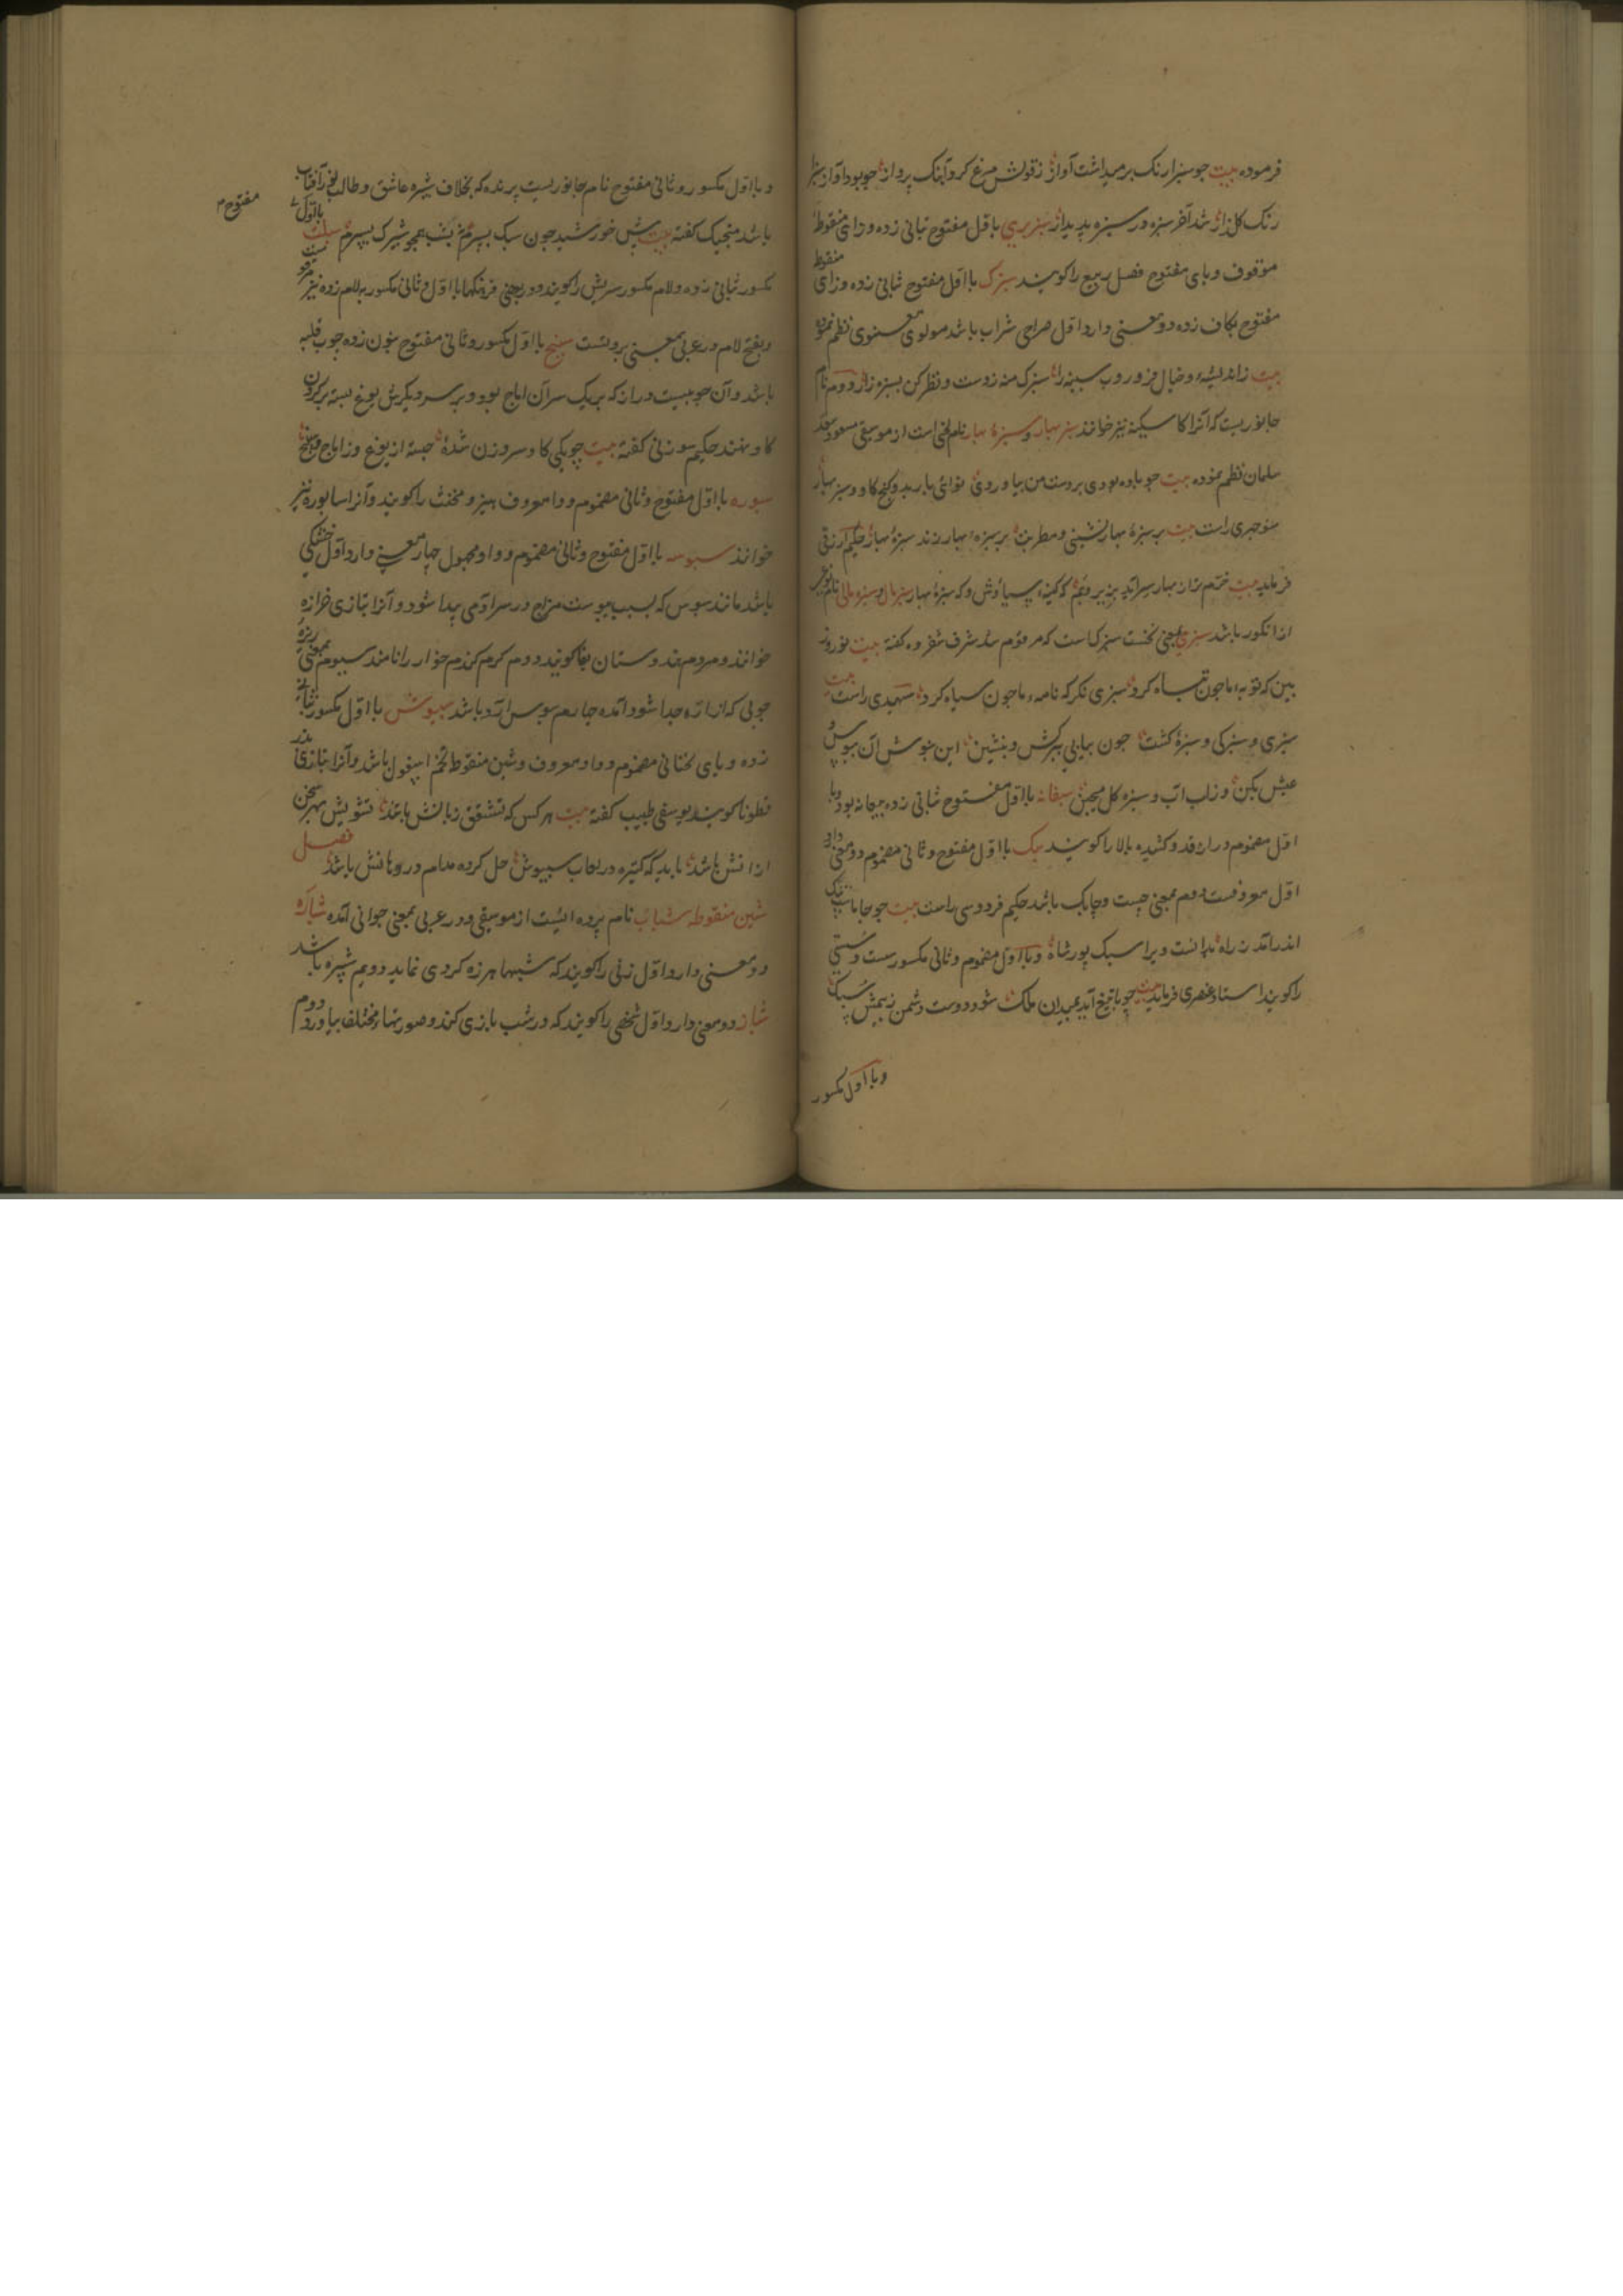 فرموده بیت جو سبزارنک برمیداشت آواز زقولش مرغ کرد آهنک پرواز جو بود آواز سبزا
رنک کلزار شد آخر سبزه در سبزه پدیدار سبزبری باقل مفتوح بثانی زده و زای منقوطه
موقوف و بای مفتوح فصل ربیع را کویند سبزک بااول مفتوح بثانی زده و زای منقوط
مفتوح بکاف زده دو معنی دارد اول صراحی شراب باشد مولوی معنوی نظم نموده
بیت زاندیشه و خیال فرو روب سینه را سبزک منه زدست و نظر کن بسبزه زار دوم نام
جانوریست که آنرا کاسکینه نیز خوانند سبز بهار و سبزهٔ بهار نام لحنی است از موسیقی مسعود سعد
سلمان نظم نموده بیت جو باده بودی بردست من بیاوردی نوائی باربد و کنج کاو و سبز بهار
منوجهری راست بیت بر سبزهٔ بهار نشینی و مطربت بر سبزه بهار زند سبزهٔ بهار حکیم ازرقی
فرماید بیت سبزهٔ بهار سبزمال و سبزه مالی نام نوعی
از انکور باشد سبزی بمعنی نخست سبزکاست که مرقوم شد شرف شفروه کفته بیت نوروز
بین که توبه ما جون تباه کرد سبزی نکر که نامهٔ ما جون سیاه کرد شهیدی راست بیت
سبزی و سبزکی و سبزهٔ کشت جون بیابی بکش و بنشین این بنوش آن ببوس
عیش بکن و زلب آب و سبزه کل میجین سبغانه بااول مفتوح بثانی زده بیعانه بود و با
اول مضموم دراز قد و کشیده بالا را کویند سبک بااول مفتوح و ثانی مضموم دو معنی دارد
اول معروفست دوم بمعنی جست و جابک باشد حکیم فردوسی راست بیت جو جاماسب تنک
اندر آمد زراه بدانست ویرا سبک پور شاه و بااول مضموم و ثانی مکسور سست و سستی
را کویند استاد عنصری فرماید بیت جو با تیغ آید بمیدان ملک شود دوست دشمن زبیمش سبک
و بااول مکسور
و بااول مکسور و ثانی مفتوح نام جانوریست پرنده که بخلاف شپره عاشق و طالب نور آفتاب
مفتوح
باشد منجیک کفته بیت پیش خورشید جون سبک بپرم نه بشب همجو شپرک بپرم سبلت بااول
مکسور بثانی زده و لام مکسور سریش را کویند و در بعضی فرهنکها بااول و ثانی مکسور بلام زده نیز مرقومست
و بفتح لام در عربی بمعنی بروتست سبنج بااول مکسور و ثانی مفتوح بنون زده جوب قلبه
باشد و آن جوبیست دراز که بر یک سر آن اماج بود و بر سر دیکرش یوغ بسته بر کردن
کاو نهند حکیم سوزنی کفته بیت جوبکی کاو سر و زن شدهٔ جسته از یوغ و ز اماج و سبنج
سبوره بااول مفتوح و ثانی مضموم و واو معروف هیز و مخنث را کویند و آنرا سابوره نیز
خوانند سبوسه بااول مفتوح و ثانی مضموم و واو مجهول جهار معنی دارد اول خشکی
باشد مانند سبوس که بسبب یبوست مزاج در سر آدمی پیدا شود و آنرا بتازی حزازه
خوانند و مردم هندوستان بفا کویند دوم کرم کندم خوار را نامند سیوم بمعنی ریزهٔ
جوبی که از اره جدا شود آمده جهارم سبوس آرد باشد سبیوش بااول مکسور بثانی
زده و یای تحتانی مضموم و واو معروف و شین منقوطه تخم اسپغول باشد و آنرا بتازی بذر
قطونا کویند یوسفی طبیب کفته بیت هر کس که تشقق زبانش باشد تشویش بهر سخن
ازانش باشد باید که کتیره در لعاب سبیوش حل کرده مدام در دهانش باشد فصل
شین منقوطه شباب نام پرده ایست از موسیقی و در عربی بمعنی جوانی آمده شباره
دو معنی دارد اول زنی را کویند که شبها هرزه کردی نماید دویم شپره باشد
شباز دو معنی دارد اول شخصی را کویند که در شب بازی کند و صورتهاء مختلف بیاورد دوم